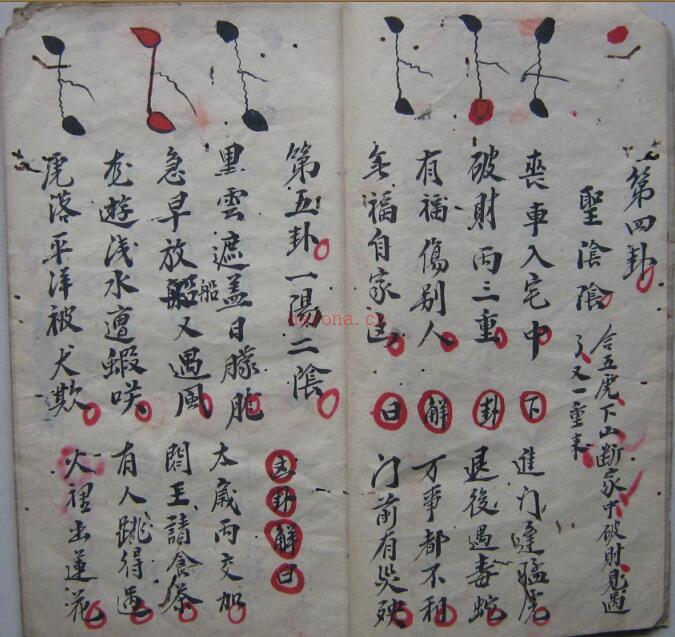 第四卦
聖陰陰
合五虎下山断家中破財見過
了又一重来
喪車入宅中
破財两三重
有福傷别人
無福自家
下卦解曰
進门逢猛虎
退後遇毒蛇
万事都不利
门前有災殃
第五卦一陽二陰
黑雲遮盖日朦胧
急早放船又遇風
船
龙遊浅水遭蝦咲
虎落平洋被犬欺
卦解曰
太歲两交加
閻王請食茶
有人跳得過
火裡出蓮花